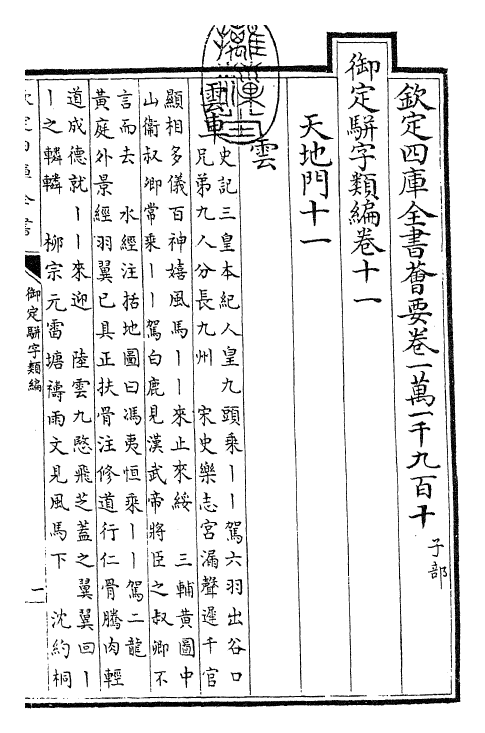 欽定四庫全書薈要卷一萬一千九百十 子部
御定駢字類編卷十一
天地門十一
雲
雲車 史記三皇本紀人皇九頭乘丨丨駕六羽出谷口
兄弟九人分長九州 宋史樂志宮漏聲遲千官
顯相多儀百神嬉風馬丨丨來止來綏 三輔黃圖中
山衞叔卿常乘丨丨駕白鹿見漢武帝將臣之叔卿不
言而去 水經注括地圖曰馮夷恒乘丨丨駕二龍
黃庭外景經羽翼已具正扶骨注修道行仁骨騰肉輕
道成德就丨丨來迎 陸雲九愍飛芝蓋之翼翼回丨
丨之轔轔 柳宗元雷塘禱雨文見風馬下 沈約桐
御定駢字類編